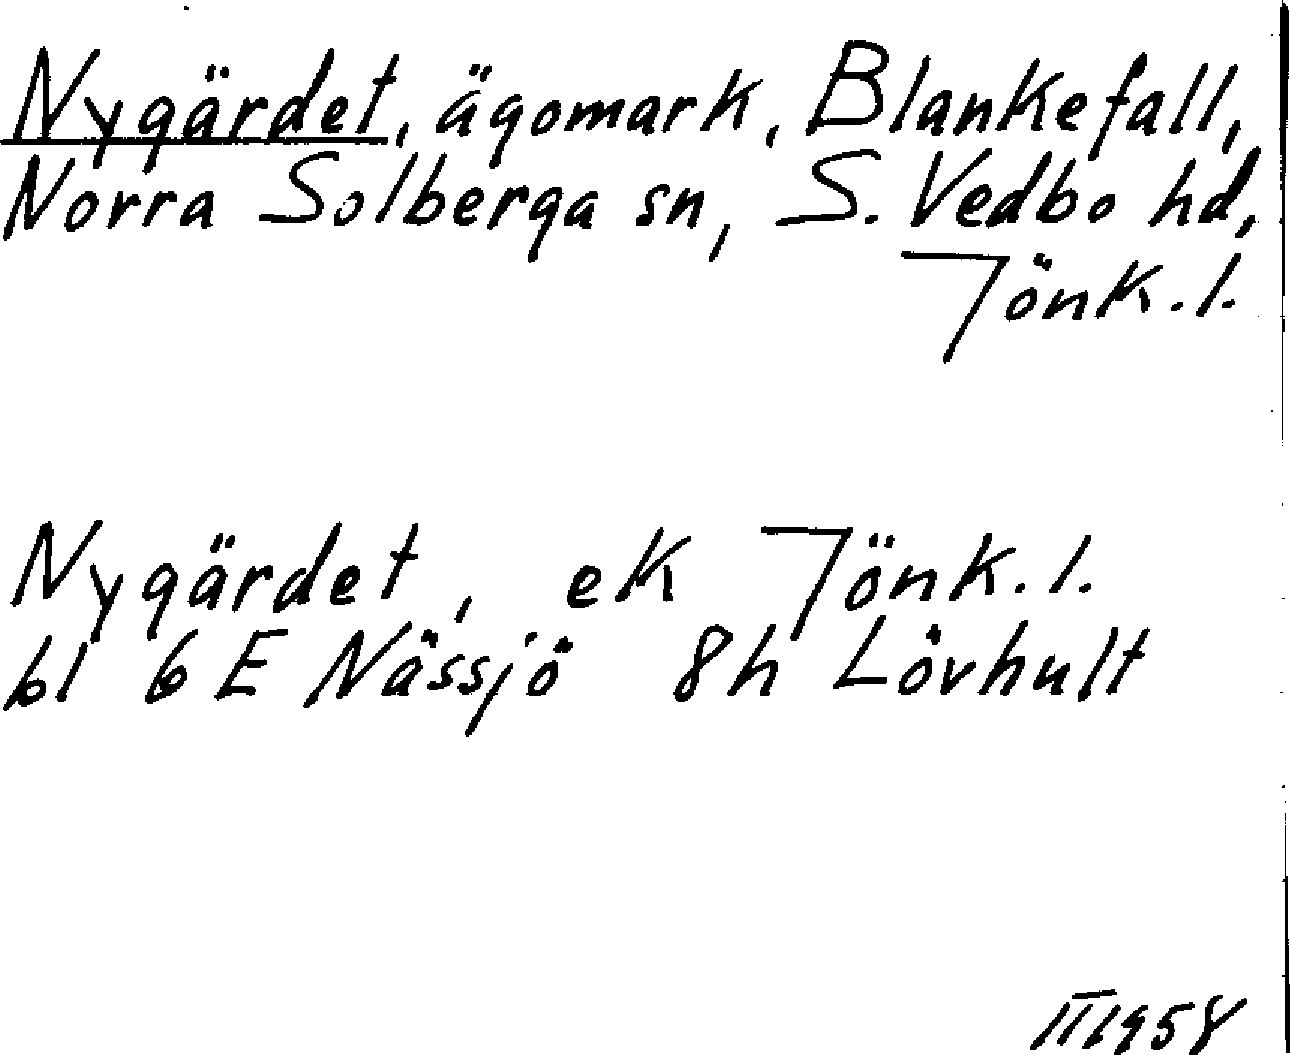 Nygärdet, ägomark, Blankefall,
Norra Solberga sn, S. Vedbo hd,
Jönk. l.
Nygärdet, ek Jönk. l.
bl 6 E Nässjö 8h Lövhult